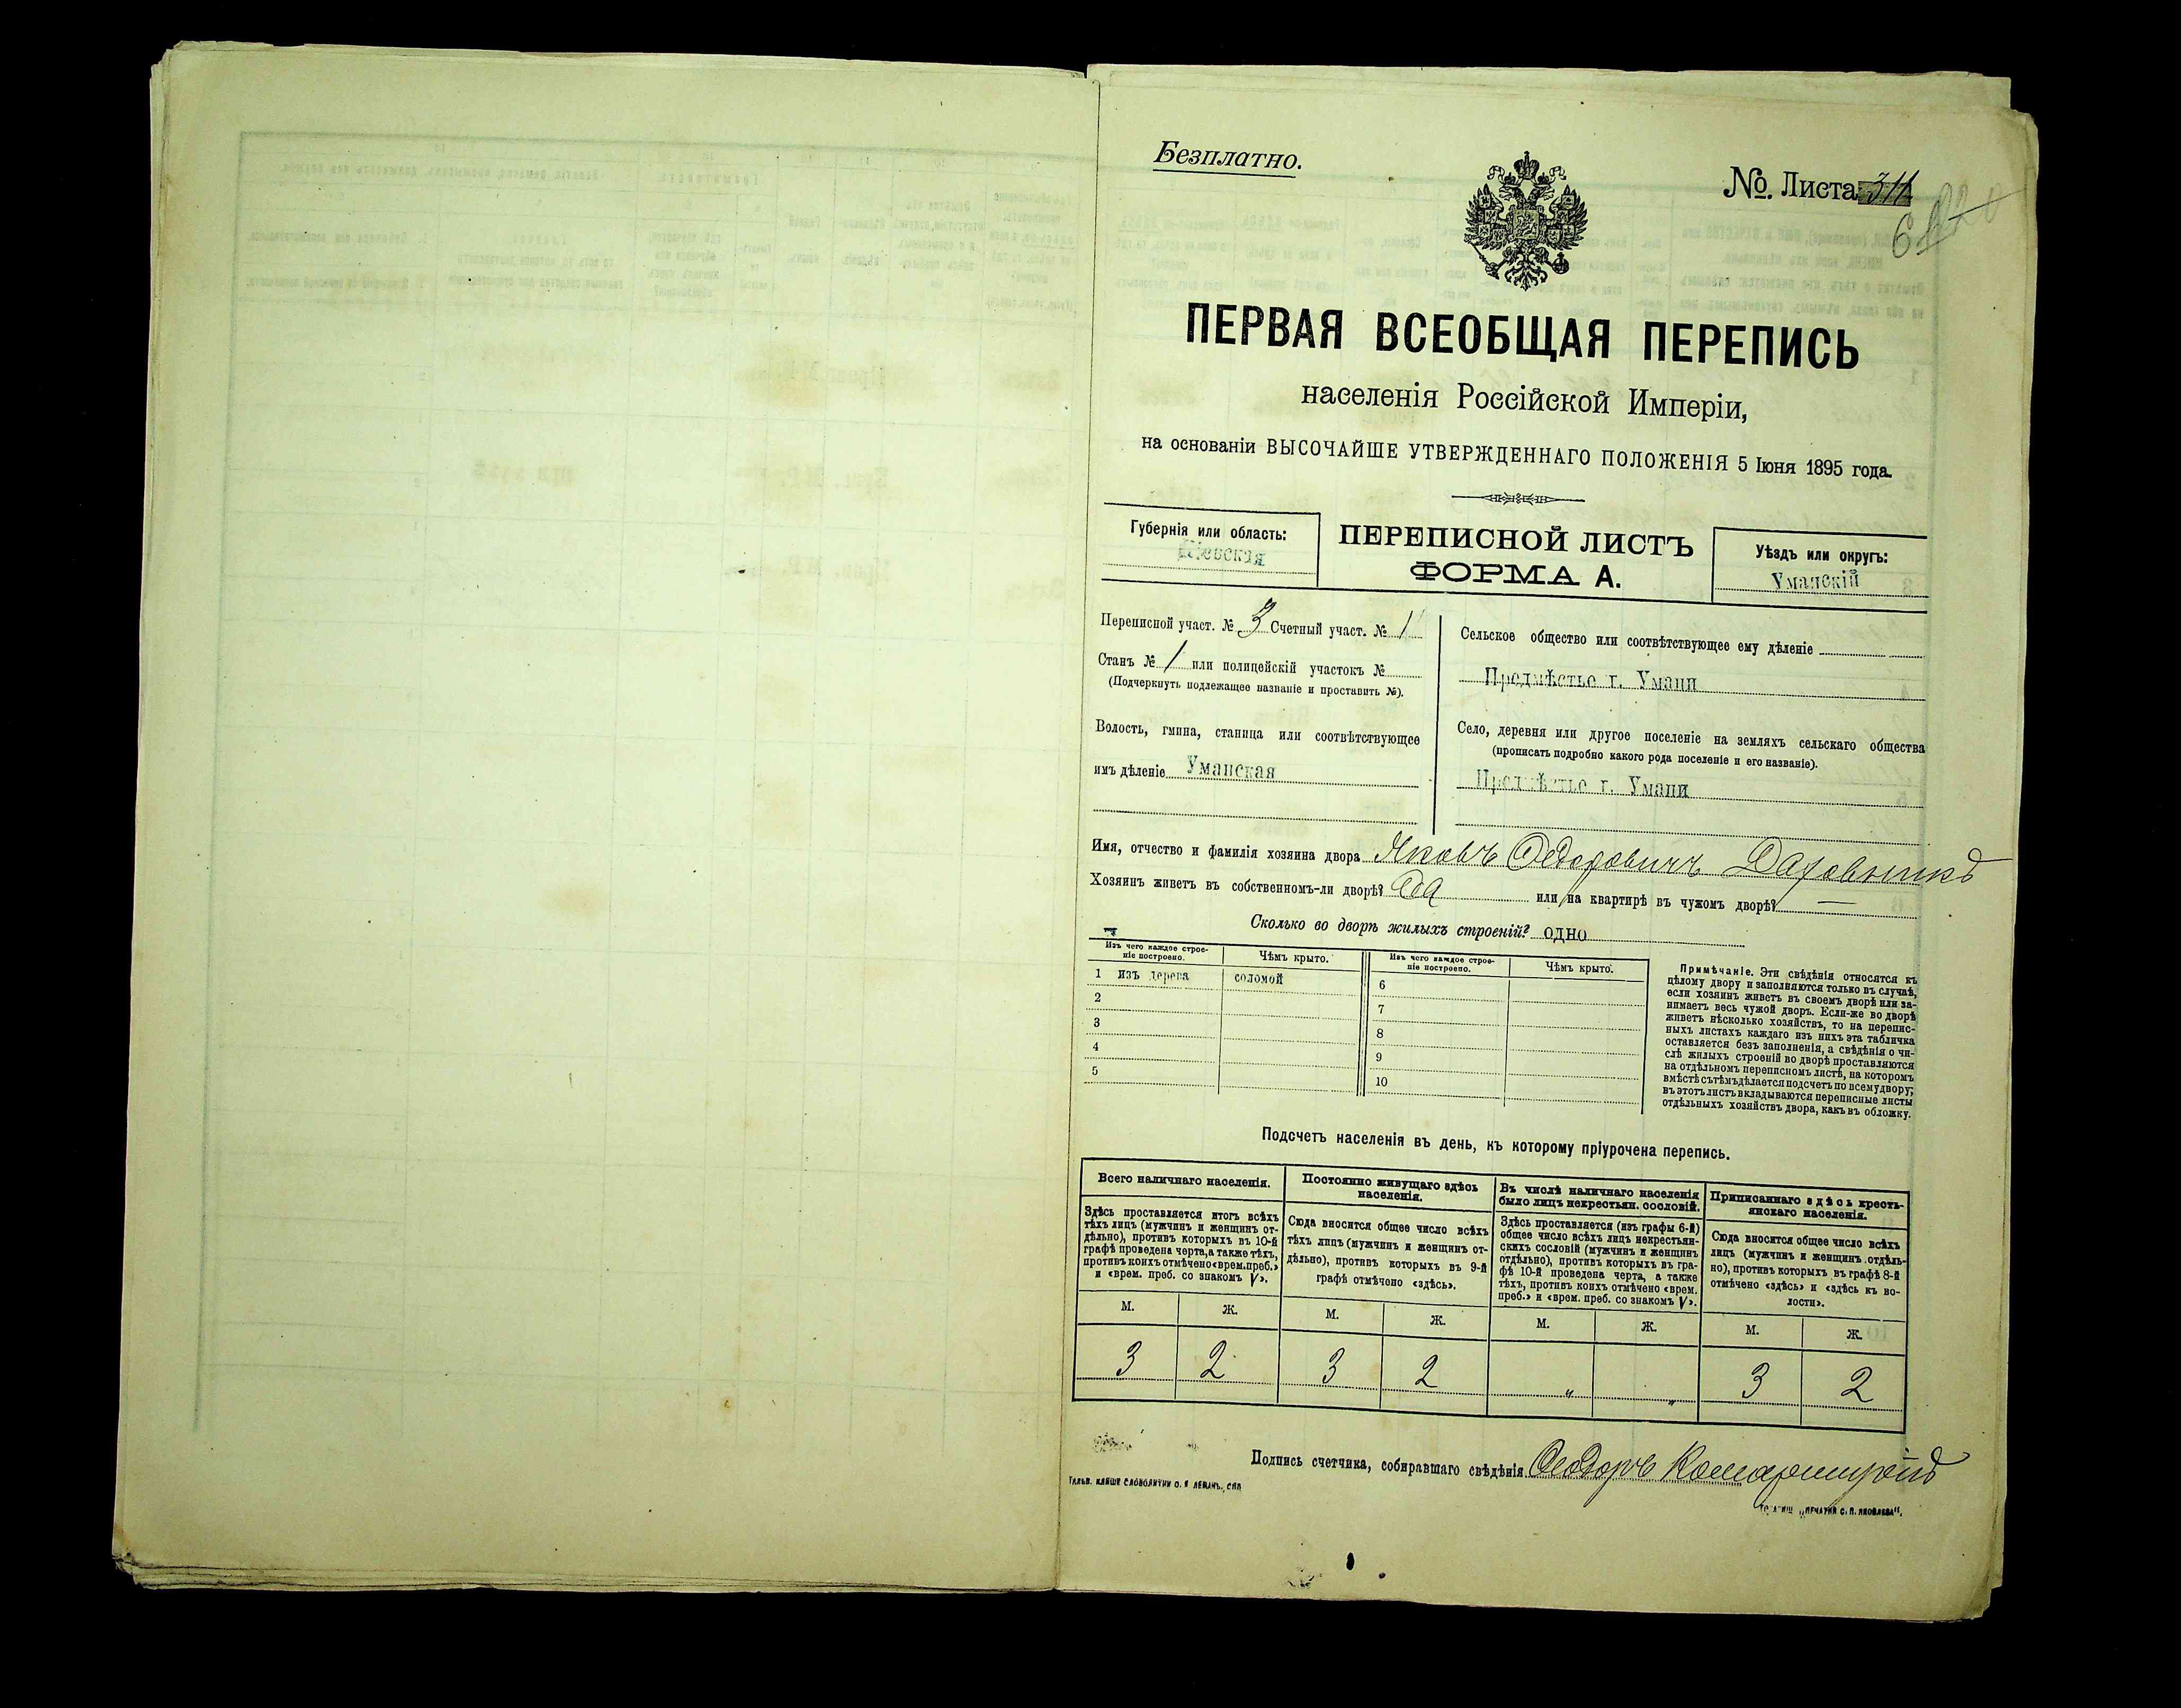 Безплатно.
№. Листа 311
ПЕРВАЯ ВСЕОБЩАЯ ПЕРЕПИСЬ
населенія Россійской Имперіи,
на основаніи ВЫСОЧАЙШЕ УТВЕРЖДЕННАГО ПОЛОЖЕНІЯ 5 Іюня 1895 года.
Губернія или область:
Кіевская
ПЕРЕПИСНОЙ ЛИСТЪ
ФОРМА А.
Уѣздъ или округъ:
Уманскій
Переписной участ. № 3 Счетный участ. № 1
Станъ № 1 или полицейскій участокъ №
(Подчеркнуть подлежащее названіе и проставить №).
Волость, гмина, станица или соотвѣтствующее
имъ дѣленіе Уманская
Сельское общество или соотвѣтствующее ему дѣленіе
Предмѣстье г. Умани
Село, деревня или другое поселеніе на земляхъ сельскаго общества
(прописать подробно какого рода поселеніе и его названіе).
Предмѣстье г. Умани
Имя, отчество и фамилія хозяина двора Яковъ Федоровичъ
Хозяинъ живетъ въ собственномъ-ли дворѣ? Да или на квартирѣ въ чужомъ дворѣ? —
Сколько во дворѣ жилыхъ строеній? одно
Изъ чего каждое строе-
ніе построено.
Чѣмъ крыто.
1 изъ дерева соломой
2
3
4
5
Изъ чего каждое строе-
ніе построено.
Чѣмъ крыто.
6
7
8
9
10
Примѣчаніе. Эти свѣдѣнія относятся къ
цѣлому двору и заполняются только въ случаѣ,
если хозяинъ живетъ въ своемъ дворѣ или за-
нимаетъ весь чужой дворъ. Если-же во дворѣ
живетъ нѣсколько хозяйствъ, то на перепис-
ныхъ листахъ каждаго изъ нихъ эта табличка
оставляется безъ заполненія, а свѣдѣнія о чи-
слѣ жилыхъ строеній во дворѣ проставляются
на отдѣльномъ переписномъ листѣ, на которомъ
вмѣстѣ съ тѣмъ дѣлается подсчетъ по всему двору;
въ этотъ листъ вкладываются переписные листы
отдѣльныхъ хозяйствъ двора, какъ въ обложку.
Подсчетъ населенія въ день, къ которому пріурочена перепись.
Всего наличнаго населенія.
Здѣсь проставляется итогъ всѣхъ
тѣхъ лицъ (мужчинъ и женщинъ от-
дѣльно), противъ которыхъ въ 10-й
графѣ проведена черта, а также тѣхъ,
противъ коихъ отмѣчено «врем. преб.»
и «врем. преб. со знакомъ V».
Постоянно живущаго здѣсь
населенія.
Сюда вносится общее число всѣхъ
тѣхъ лицъ (мужчинъ и женщинъ от-
дѣльно), противъ которыхъ въ 9-й
графѣ отмѣчено «здѣсь».
Въ числѣ наличнаго населенія
было лицъ некрестьян. сословій.
Здѣсь проставляется (изъ графы 6-й)
общее число всѣхъ лицъ некрестьян-
скихъ сословій (мужчинъ и женщинъ
отдѣльно), противъ которыхъ въ гра-
фѣ 10-й проведена черта, а также
тѣхъ, противъ коихъ отмѣчено «врем.
преб.» и «врем. преб. со знакомъ V».
Приписаннаго здѣсь кресть-
янскаго населенія.
Сюда вносится общее число всѣхъ
лицъ (мужчинъ и женщинъ отдѣль-
но), противъ которыхъ въ графѣ 8-й
отмѣчено «здѣсь» и «здѣсь къ во-
лости».
М. Ж. М. Ж. М. Ж. М. Ж.
3 2 3 2 " " 3 2
Подпись счетчика, собиравшаго свѣдѣнія